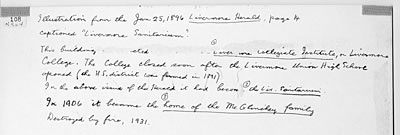 108
Illustration from the Jan 25, 1896 Livermore Herald, page 4
captioned "Livermore Sanitarium."
This building Livermore Collegiate Institute, or Livermore
College. The College closed soon after the Livermore Union High School
opened (the H.S. district was formed in 1891)
In the above view of the Herald it had become the Liv. Sanitarium.
In 1906 it became the home of the McGlinchey family
Destroyed by fire, 1931.